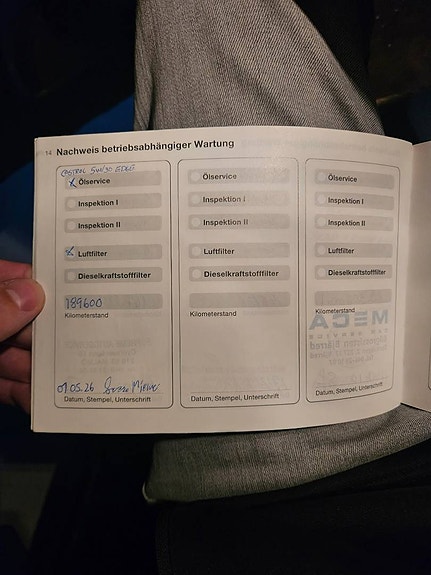 14 Nachweis betriebsabhängiger Wartung
CASTROL 5W/30 EDGE
X Ölservice
Inspektion I
Inspektion II
X Luftfilter
Dieselkraftstofffilter
189600
Kilometerstand
07.05.26
Datum, Stempel, Unterschrift
Ölservice
Inspektion I
Inspektion II
Luftfilter
Dieselkraftstofffilter
Kilometerstand
Datum, Stempel, Unterschrift
Ölservice
Inspektion I
Inspektion II
Luftfilter
Dieselkraftstofffilter
Kilometerstand
MECA
Datum, Stempel, Unterschrift